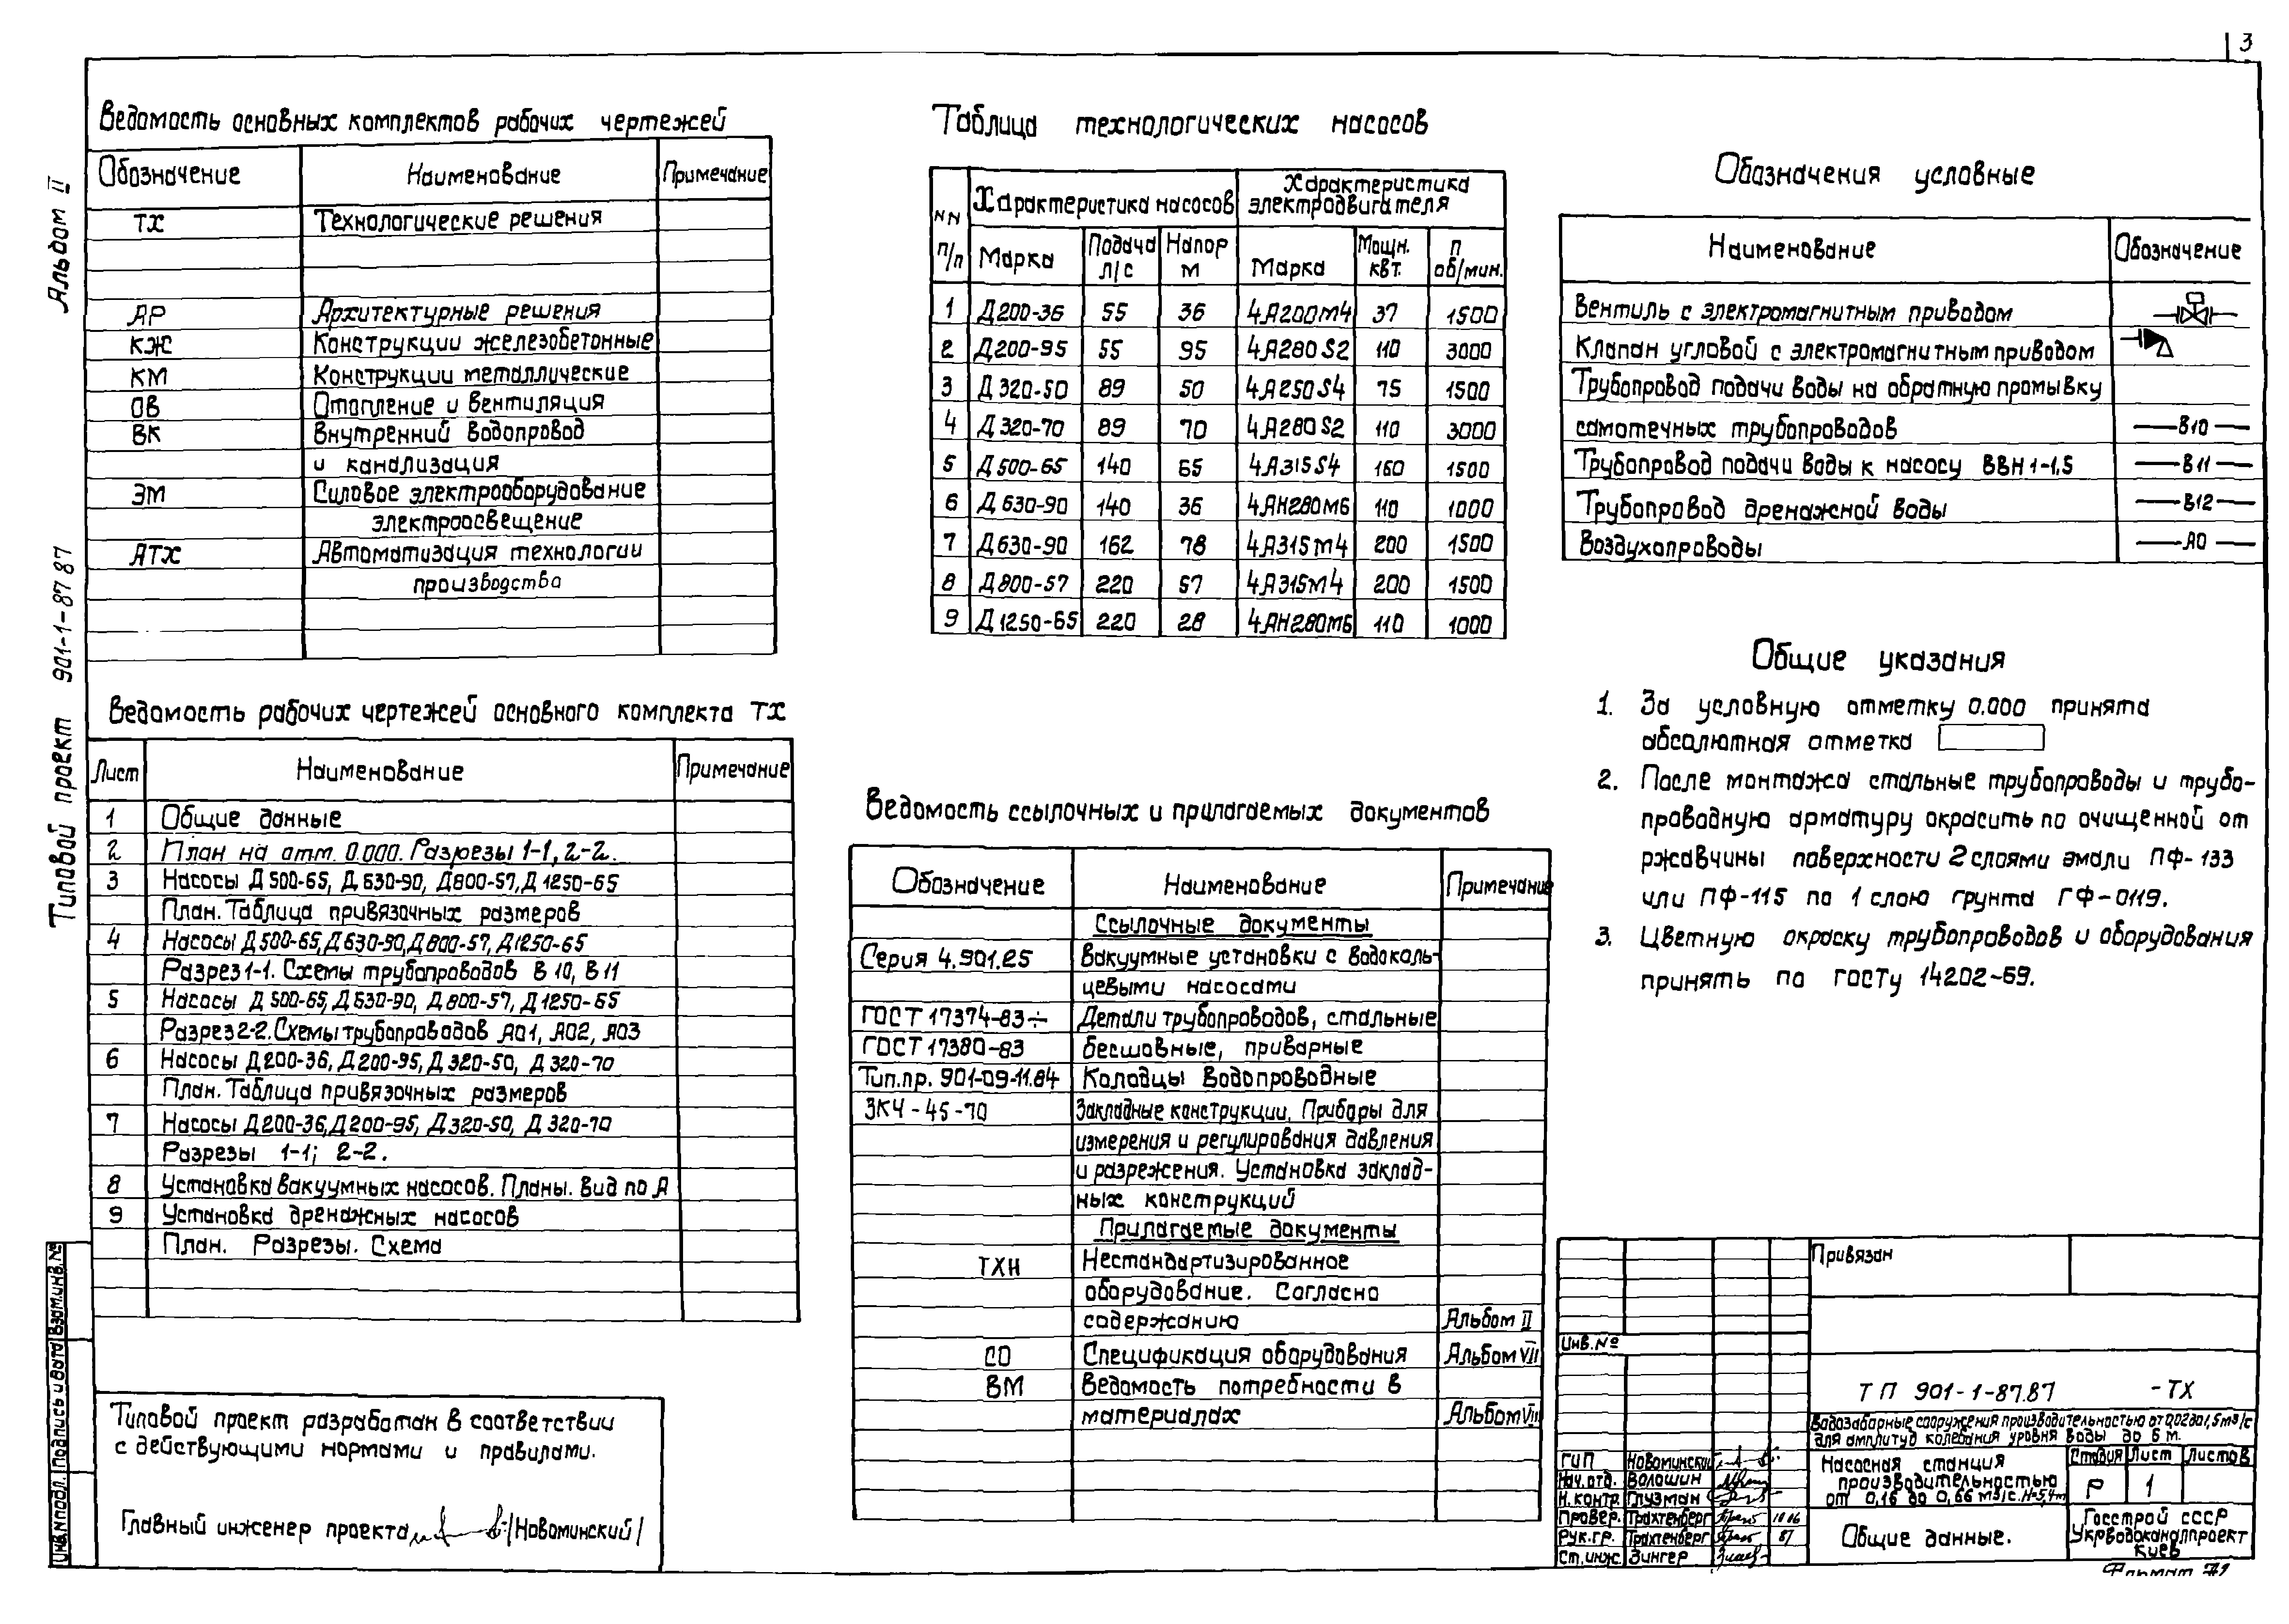 3
Альбом II
Типовой проект 901-1-87 87
Ведомость основных комплектов рабочих чертежей
Обозначение Наименование Примечание
ТХ Технологические решения
АР Архитектурные решения
КЖ Конструкции железобетонные
КМ Конструкции металлические
ОВ Отопление и вентиляция
ВК Внутренний водопровод
и канализация
ЭМ Силовое электрооборудование
электроосвещение
АТХ Автоматизация технологии
производства
Ведомость рабочих чертежей основного комплекта ТХ
Лист Наименование Примечание
1 Общие данные
2 План на отм. 0.000. Разрезы 1-1, 2-2.
3 Насосы Д 500-65, Д 630-90, Д800-57, Д 1250-65
План. Таблица привязочных размеров
4 Насосы Д 500-65, Д 630-90, Д 800-57, Д 1250-65
Разрез 1-1. Схемы трубопроводов В 10, В 11
5 Насосы Д 500-65, Д 630-90, Д 800-57, Д 1250-65
Разрез 2-2. Схемы трубопроводов А01, А02, А03
6 Насосы Д 200-36, Д 200-95, Д 320-50, Д 320-70
План. Таблица привязочных размеров
7 Насосы Д 200-36, Д 200-95, Д 320-50, Д 320-70
Разрезы 1-1; 2-2.
8 Установка вакуумных насосов. Планы. Вид по А
9 Установка дренажных насосов
План. Разрезы. Схема
Типовой проект разработан в соответствии
с действующими нормами и правилами.
Главный инженер проекта /Новоминский/
Инв.№подл. Подпись и дата Взам.инв.№
Таблица технологических насосов
№№ п/п Характеристика насосов Характеристика электродвигателя
Марка Подача л/с Напор м Марка Мощн. квт. п об/мин.
1 Д200-36 55 36 4А200М4 37 1500
2 Д200-95 55 95 4А280S2 110 3000
3 Д 320-50 89 50 4А250S4 75 1500
4 Д 320-70 89 70 4А280S2 110 3000
5 Д 500-65 140 65 4А315S4 160 1500
6 Д 630-90 140 36 4АН280М6 110 1000
7 Д630-90 162 78 4А315М4 200 1500
8 Д800-57 220 57 4А315М4 200 1500
9 Д 1250-65 220 28 4АН280М6 110 1000
Ведомость ссылочных и прилагаемых документов
Обозначение Наименование Примечание
Ссылочные документы
Серия 4.901.25 Вакуумные установки с водоколь-
цевыми насосами
ГОСТ 17374-83÷ Детали трубопроводов, стальные
ГОСТ 17380-83 бесшовные, приварные
Тип.пр. 901-09-11.84 Колодцы водопроводные
ЗКЧ-45-70 Закладные конструкции. Приборы для
измерения и регулирования давления
и разрежения. Установка заклад-
ных конструкций
Прилагаемые документы
ТХН Нестандартизированное
оборудование. Согласно
содержанию Альбом II
СО Спецификация оборудования Альбом VII
ВМ Ведомость потребности в
материалах Альбом VIII
Обозначения условные
Наименование Обозначение
Вентиль с электромагнитным приводом
Клапан угловой с электромагнитным приводом
Трубопровод подачи воды на обратную промывку
самотечных трубопроводов В10
Трубопровод подачи воды к насосу ВВН 1-1,5 В11
Трубопровод дренажной воды В12
Воздухопроводы А0
Общие указания
1. За условную отметку 0.000 принята
абсолютная отметка
2. После монтажа стальные трубопроводы и трубо-
проводную арматуру окрасить по очищенной от
ржавчины поверхности 2 слоями эмали ПФ-133
или ПФ-115 по 1 слою грунта ГФ-0119.
3. Цветную окраску трубопроводов и оборудования
принять по госту 14202-69.
Привязан
Инв.№
ТП 901-1-87.87 -ТХ
Водозаборные сооружения производительностью от 0,02 до 1,5 м3/с
для амплитуд колебания уровня воды до 6 м.
ГИП Новоминский
Нач.отд. Волошин
Н.контр. Глузман
Провер. Трахтенберг 10.06
Рук.гр. Трахтенберг 87
Ст.инж. Зингер
Насосная станция
производительностью
от 0,16 до 0,66 м3/с. Н=5,4м
Стадия Лист Листов
Р 1
Общие данные.
Госстрой СССР
Укрводоканалпроект
Киев
Формат А2